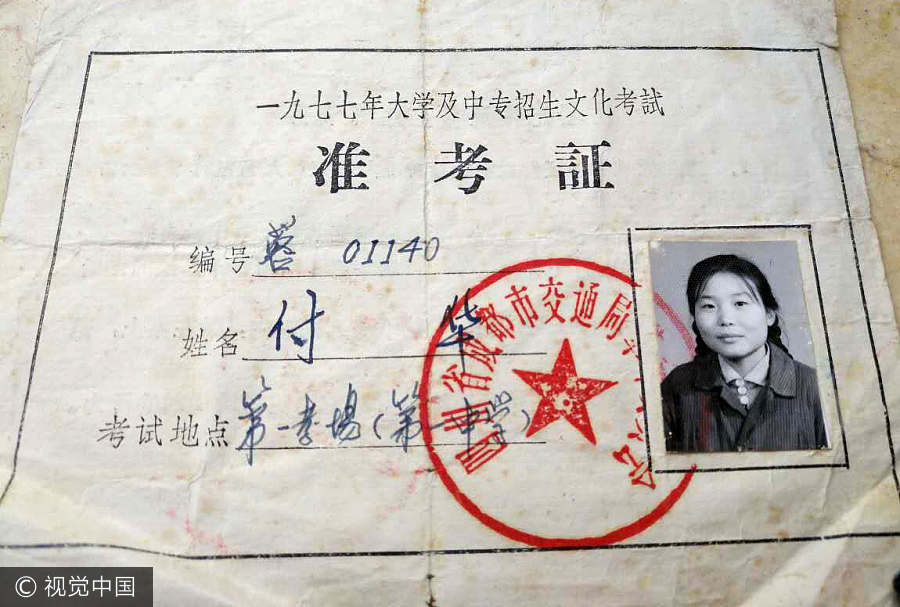 一九七七年大学及中专招生文化考試
准考証
编号 蓉 01140
姓名 付华
考试地点 第一考場(第一中学)
四川省成都市交通局
会
© 视觉中国